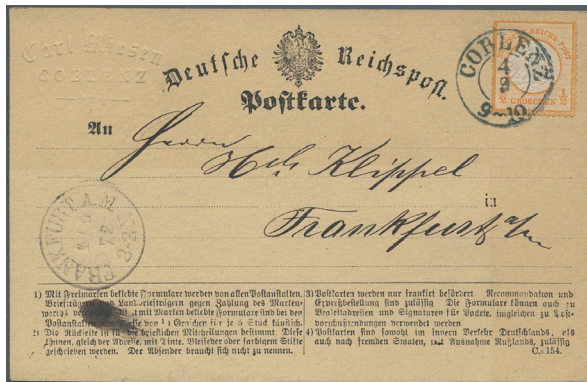 Carl Miesen
COBLENZ
Deutsche Reichspost.
Postkarte.
DEUTSCHE REICHS-POST
1/2 GROSCHEN 1/2
COBLENZ
4
9
9-10
An
Herrn
Hch Klippel
in
Frankfurt a/m
FRANKFURT A.M.
72
1) Mit Freimarken beklebte Formulare werden von allen Postanstalten,
Briefträgern und Landbriefträgern gegen Zahlung des Marken-
mit Marken beklebte Formulare sind bei den
Postanstalten zum von 1/4 Groschen für je 5 Stück käuflich.
2) Die Rückseite ist zu brieflichen Mittheilungen bestimmt. Diese
können, gleich der Adresse, mit Tinte, Bleifeder oder farbigem Stifte
geschrieben werden. Der Absender braucht sich nicht zu nennen.
3) Postkarten werden nur frankirt befördert. Recommandation und
Expreßbestellung sind zulässig. Die Formulare können auch zu
Begleitadressen und Signaturen für Packete, imgleichen zu Post-
vorschußsendungen verwendet werden
4) Postkarten sind sowohl im innern Verkehr Deutschlands, als
auch nach fremden Staaten, mit Ausnahme Rußlands, zulässig
C. 154.